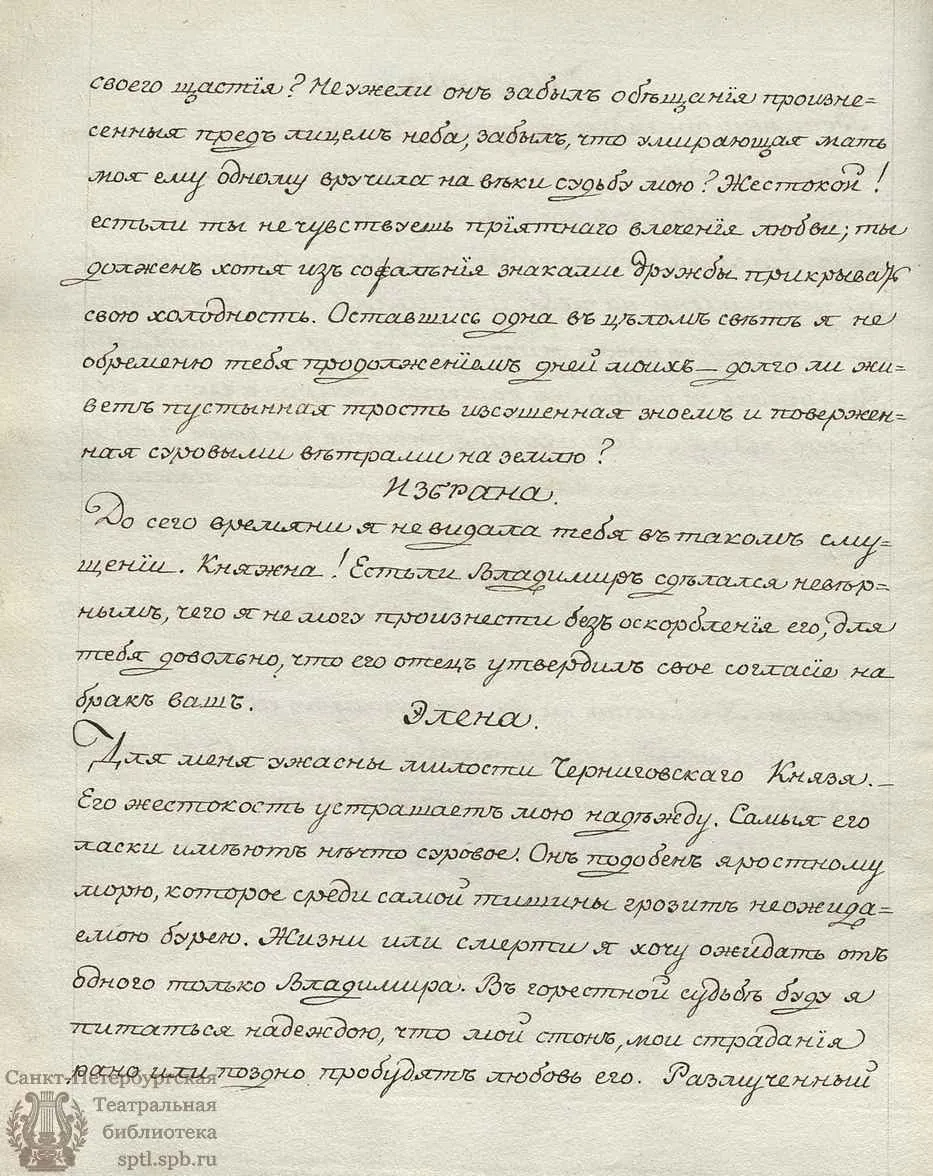 своего щастія? Неужели онъ забылъ обѣщанія произне=
сенныя предъ лицемъ неба, забылъ, что умирающая мать
моя ему одному вручила на вѣки судьбу мою? Жестокой!
естьли ты не чувствуешь пріятнаго влеченія любви; ты
долженъ хотя изъ сожалѣнія знаками дружбы прикрывать
свою холодность. Оставшись одна въ цѣломъ свѣтѣ я не
обременю тебя продолженіемъ дней моихъ — долго ли жи=
ветъ пустынная трость изсушенная зноемъ и повержен=
ная суровыми вѣтрами на землю?
Избрана.
До сего времяни я не видала тебя въ такомъ сму=
щеніи. Княжна! Естьли Владимиръ сдѣлался невѣр=
нымъ, чего я не могу произнести безъ оскорбленія его, для
тебя довольно, что его отецъ утвердилъ свое согласіе на
бракъ вашъ.
Элена.
Для меня ужасны милости Черниговскаго Князя. —
Его жестокость устрашаетъ мою надѣжду. Самыя его
ласки имѣютъ нѣчто суровое. Онъ подобенъ яростному
морю, которое среди самой тишины грозитъ неожида=
емою бурею. Жизни или смерти я хочу ожидать отъ
одного только Владимира. Въ горестной судьбѣ буду я
питаться надеждою, что мой стонъ, мои страданія
рано или поздно пробудятъ любовь его. Размученный
Санкт-Петербургская
Театральная
библиотека
sptl.spb.ru